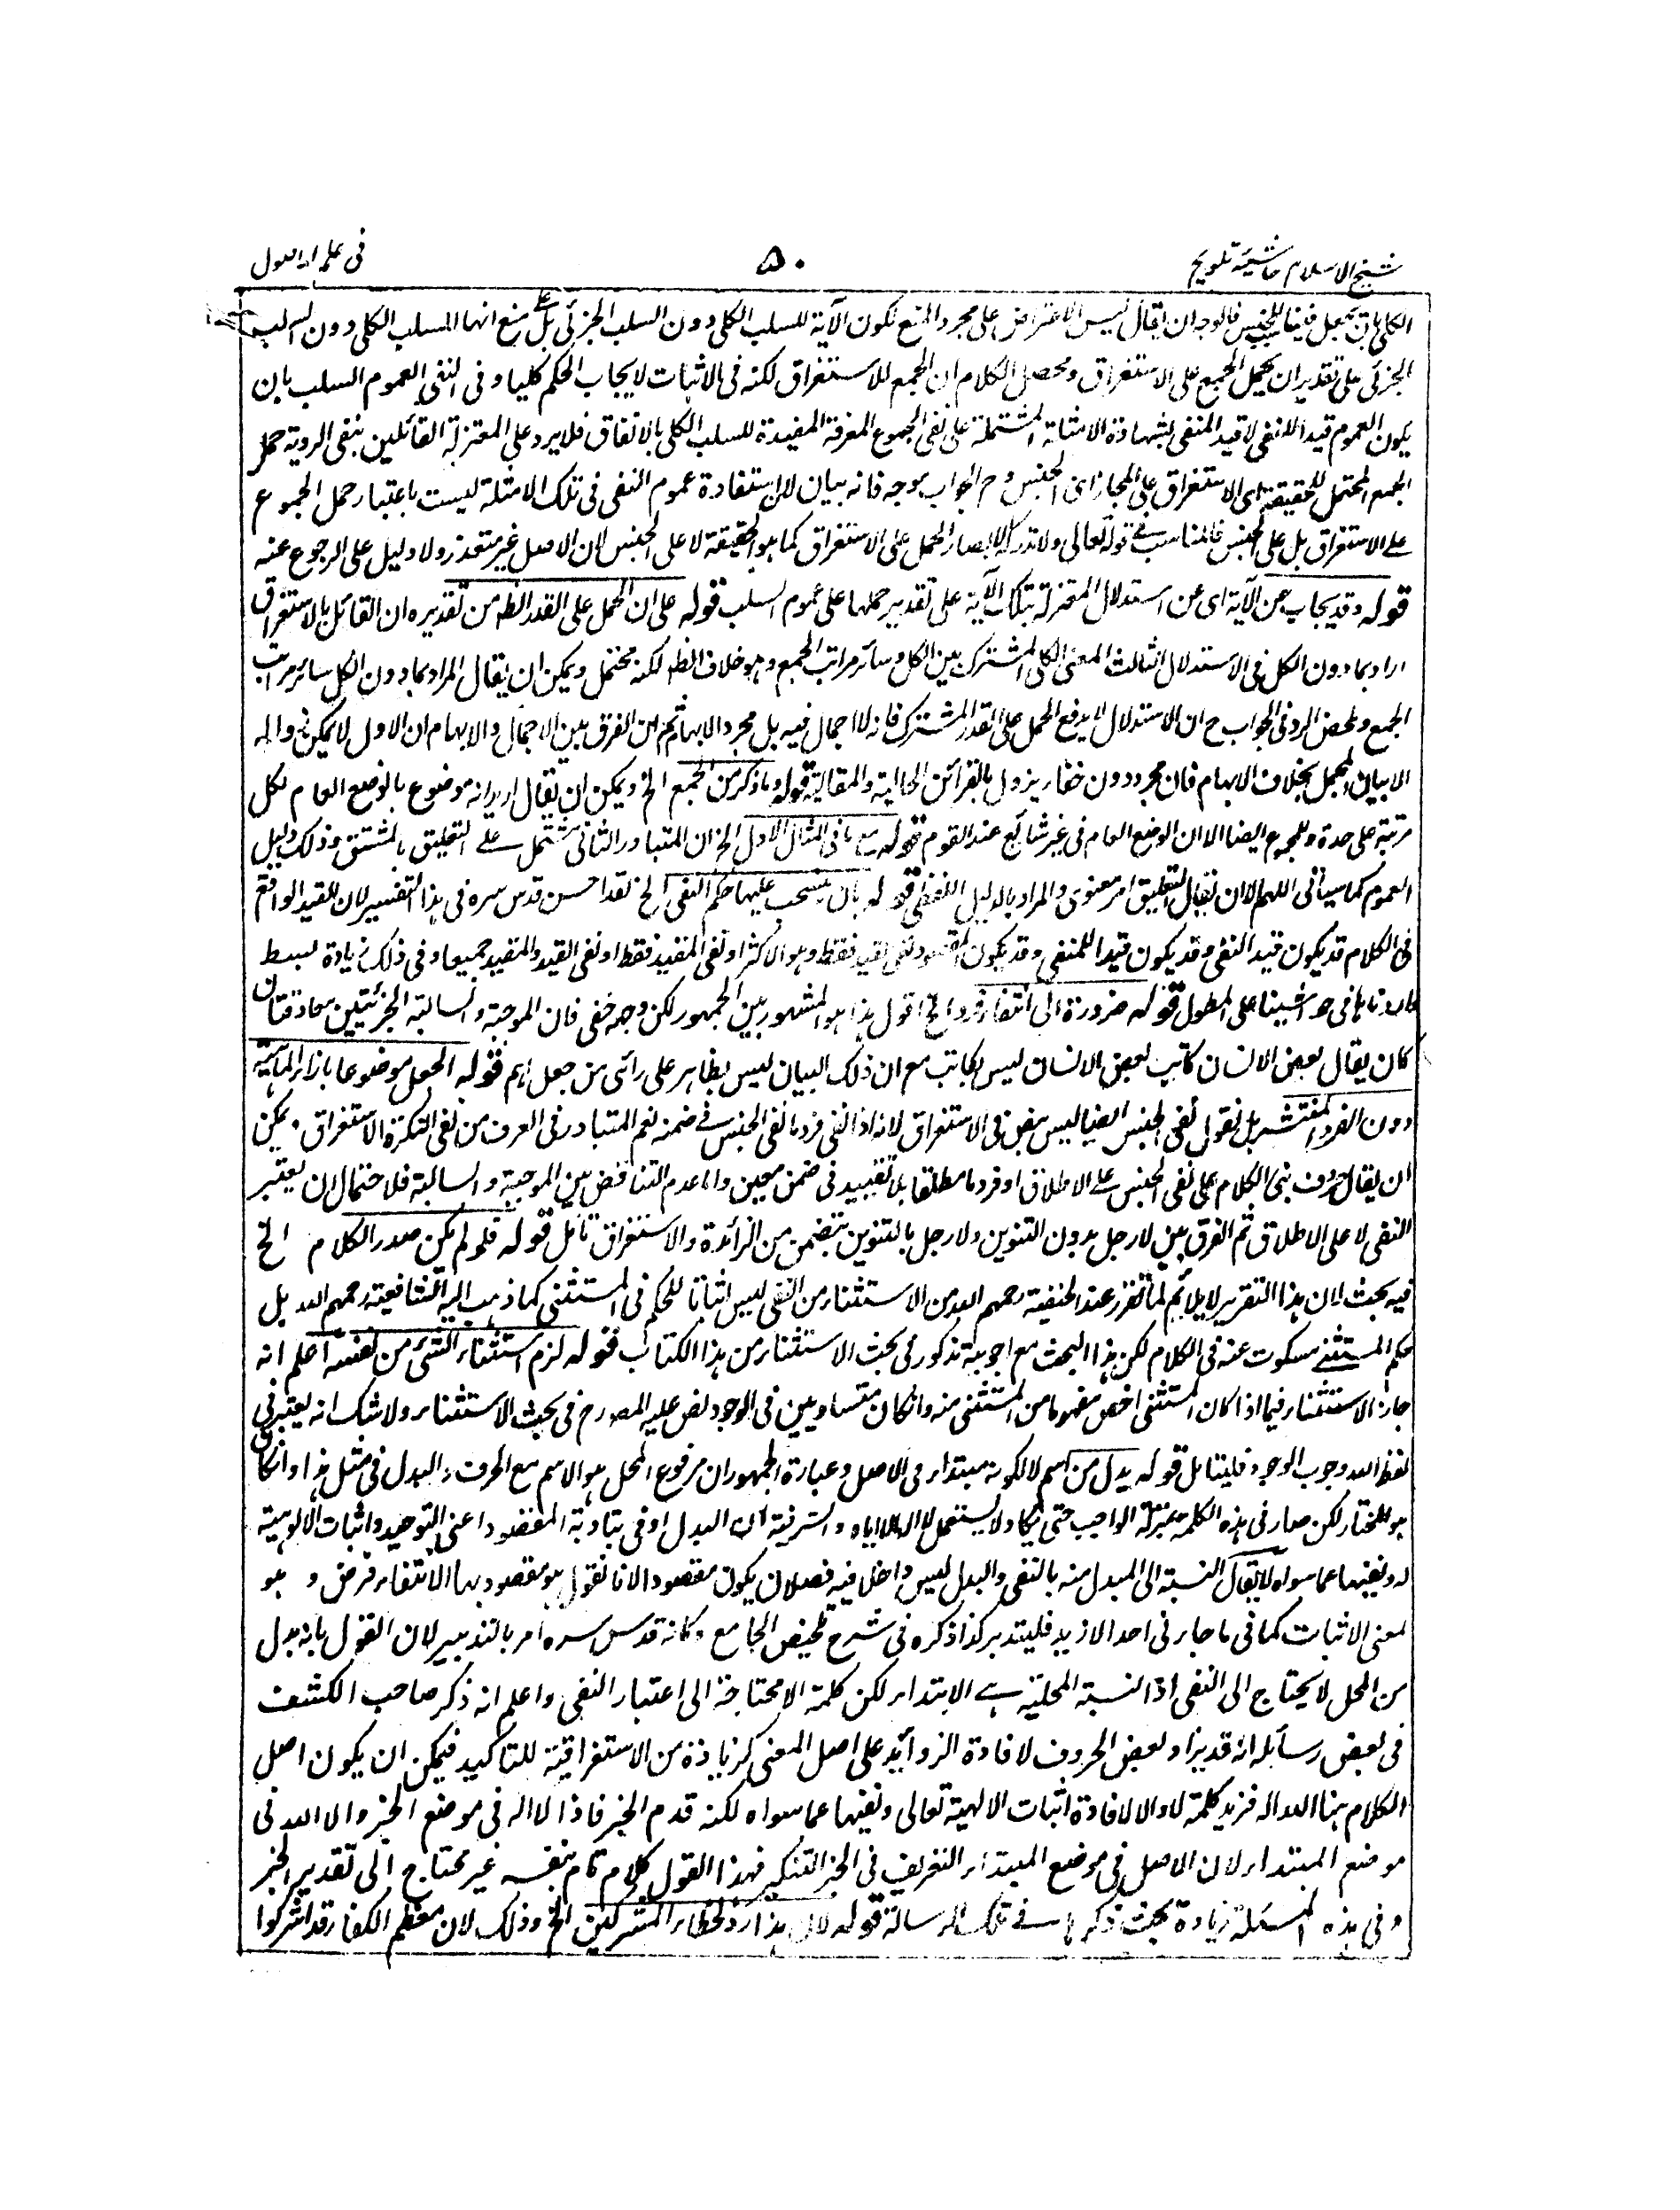 شيخ الاسلام حاشية تلويح
۵۰
فى علم الاصول
الكلى بان يجعل فيها للجنس فالوجه ان يقال ليس الاعتراض على مجرد المنع لكون الآية للسلب الكلى دون السلب الجزئى بل على منع انها للسلب الكلى دون السلب
الجزئى على تقدير ان يحمل الجمع على الاستغراق ومحصل الكلام ان الجمع للاستغراق لكنه فى الاثبات لايجاب الحكم كليا و فى النفى لعموم السلب بان
يكون العموم قيدا للنفى لا قيد المنفى بشهادة الامثلة المشتملة على نفى الجموع المعرفة المفيدة للسلب الكلى بالاتفاق فلا يرد على المعتزلة القائلين بنفى الروية حمل
الجمع المحتمل للحقيقة اى الاستغراق على المجاز اى الجنس وح الجواب موجه فانه بيان لان استفادة عموم النفى فى تلك الامثلة ليست باعتبار حمل الجموع
على الاستغراق بل على الجنس فالمناسب فى قوله تعالى ولا تدركه الابصار الحمل على الاستغراق كما هو الحقيقة لا على الجنس لان الاصل غير متعذر ولا دليل على الرجوع عنه
قوله وقد يجاب عن الآية اى عن استدلال المعتزلة بتلك الآية على تقدير حملها على عموم السلب قوله على ان الحمل على القدر الظه من تقديره ان القائل بالاستغراق
اراد بما دون الكل فى الاستدلال الثالث المعنى الكلى المشترك بين الكل وسائر مراتب الجمع وهو خلاف الظه لكنه محتمل ويمكن ان يقال المراد بما دون الكل سائر مراتب
الجمع وملخص الرد فى الجواب ح ان الاستدلال لا يدفع الحمل على القدر المشترك فانه لا اجمال فيه بل مجرد الابهام ثم ان الفرق بين الاجمال والابهام ان الاول لا يمكن زواله
الا ببيان المجمل بخلاف الابهام فان مجرد دون خفاء يزول بالقرائن الحالية والمقالية قوله وما ذكر من الجمع الخ ويمكن ان يقال اريد انه موضوع بالوضع العام لكل
مرتبة على حدة وللمجموع ايضا الا ان الوضع العام فى غير شائع عند القوم قوله مع ما فى المثال الاول الخ ان المتبادر الثانى مشتمل على التعليق بالمشتق وذلك دليل
العموم كما سياتى اللهم الا ان يقال التعليق امر معنوى والمراد بالدليل اللفظى قوله بان ينسحب عليها حكم النفى الخ لقد احسن قدس سره فى هذا التفسير لان القيد الواقع
فى الكلام قد يكون قيد النفى وقد يكون قيدا للمنفى وقد يكون المقصود نفى القيد فقط وهو الاكثر او نفى المقيد فقط او نفى القيد والمقيد جميعا وفى ذلك زيادة بسط
فى حواشينا على المطول قوله ضرورة الى انتفاء فرد الخ اقول هذا هو المشهور بين الجمهور لكن وجهه خفى فان الموجبة والسالبة الجزئيتين صادقتان
كان يقال بعض الانسان كاتب بعض الانسان ليس بكاتب مع ان ذلك البيان ليس بظاهر على رائى من جعل اسم قوله الجعل موضوعا بازاء الماهية
دون الفرد المنتشر بل نقول نفى الجنس ايضا ليس بنص فى الاستغراق لانه اذا نفى فرد ما نفى الجنس فى ضمنه نعم المتبادر فى العرف من نفى النكرة الاستغراق ويمكن
ان يقال حرف بنى الكلام على نفى الجنس على الاطلاق او فرد ما مطلقا بلا تقييد فى ضمن معين واما عدم التناقض بين الموجبة والسالبة فلاحتمال ان يعتبر
النفى لا على الاطلاق ثم الفرق بين لا رجل بدون التنوين ولا رجل بالتنوين بتضمن من الزائدة والاستغراق تامل قوله فلو لم يكن صدر الكلام الخ
فيه بحث لان هذا التقرير لا يلائم لما تقرر عند الحنفية رحمهم الله من الاستثناء من النفى ليس اثباتا للحكم فى المستثنى كما ذهب اليه الشافعية رحمهم الله بل
حكم المستثنى مسكوت عنه فى الكلام لكن هذا البحث مع اجوبته مذكور فى بحث الاستثناء من هذا الكتاب قوله لزم استثناء الشئ من نفسه اعلم انه
جاز الاستثناء فيما اذا كان المستثنى اخص مفهوما من المستثنى منه وان كان متساويين فى الوجود نص عليه المصه رح فى بحث الاستثناء ولا شك انه يعتبر فى
لفظ الله وجوب الوجود فليتامل قوله بدل من اسم لا لكونه مبتداء فى الاصل وعبارة الجمهور ان مرفوع المحل هو الاسم مع الحرف والبدل فى مثل هذا وان كان
هو المختار لكن صار فى هذه الكلمة بمنزلة الواجب حتى لا يكاد يستعمل لا اله الا اياه والسر فيه ان البدل اوفى بتادية المقصود اعنى التوحيد واثبات الالوهية
له ونفيها عما سواه لا يقال النسبة الى المبدل منه بالنفى والبدل ليس داخلا فيه فضلا ان يكون مقصودا لانا نقول هو مقصود بها الانتفاء فرض و هو
لمعنى الاثبات كما فى ما جاءنى احد الا زيد فليتدبر كذا ذكره فى شرح تلخيص الجامع وكانه قدس سره امر بالتدبير لان القول بانه بدل
من المحل لا يحتاج الى النفى اذ النسبة المحلية هى الابتداء لكن كلمة الا محتاجة الى اعتبار النفى واعلم انه ذكر صاحب الكشف
فى بعض رسائله انه قد يزاد بعض الحروف لافادة الزوائد على اصل المعنى كزيادة من الاستغراقية للتاكيد فيمكن ان يكون اصل
الكلام هنا الله اله فزيد كلمة لا والا لافادة اثبات الالهية تعالى ونفيها عما سواه لكنه قدم الخبر فاذا لا اله فى موضع الخبر والا الله فى
موضع المبتداء لان الاصل فى موضع المبتداء التعريف فى الخبر التنكير فهذا القول كلام تام بنفسه غير محتاج الى تقدير الخبر
و فى هذه المسئلة زيادة بحث ذكرها فى تلك الرسالة قوله لان هذا رد لخطاء المشركين الخ وذلك لان معظم الكفار قد اشركوا